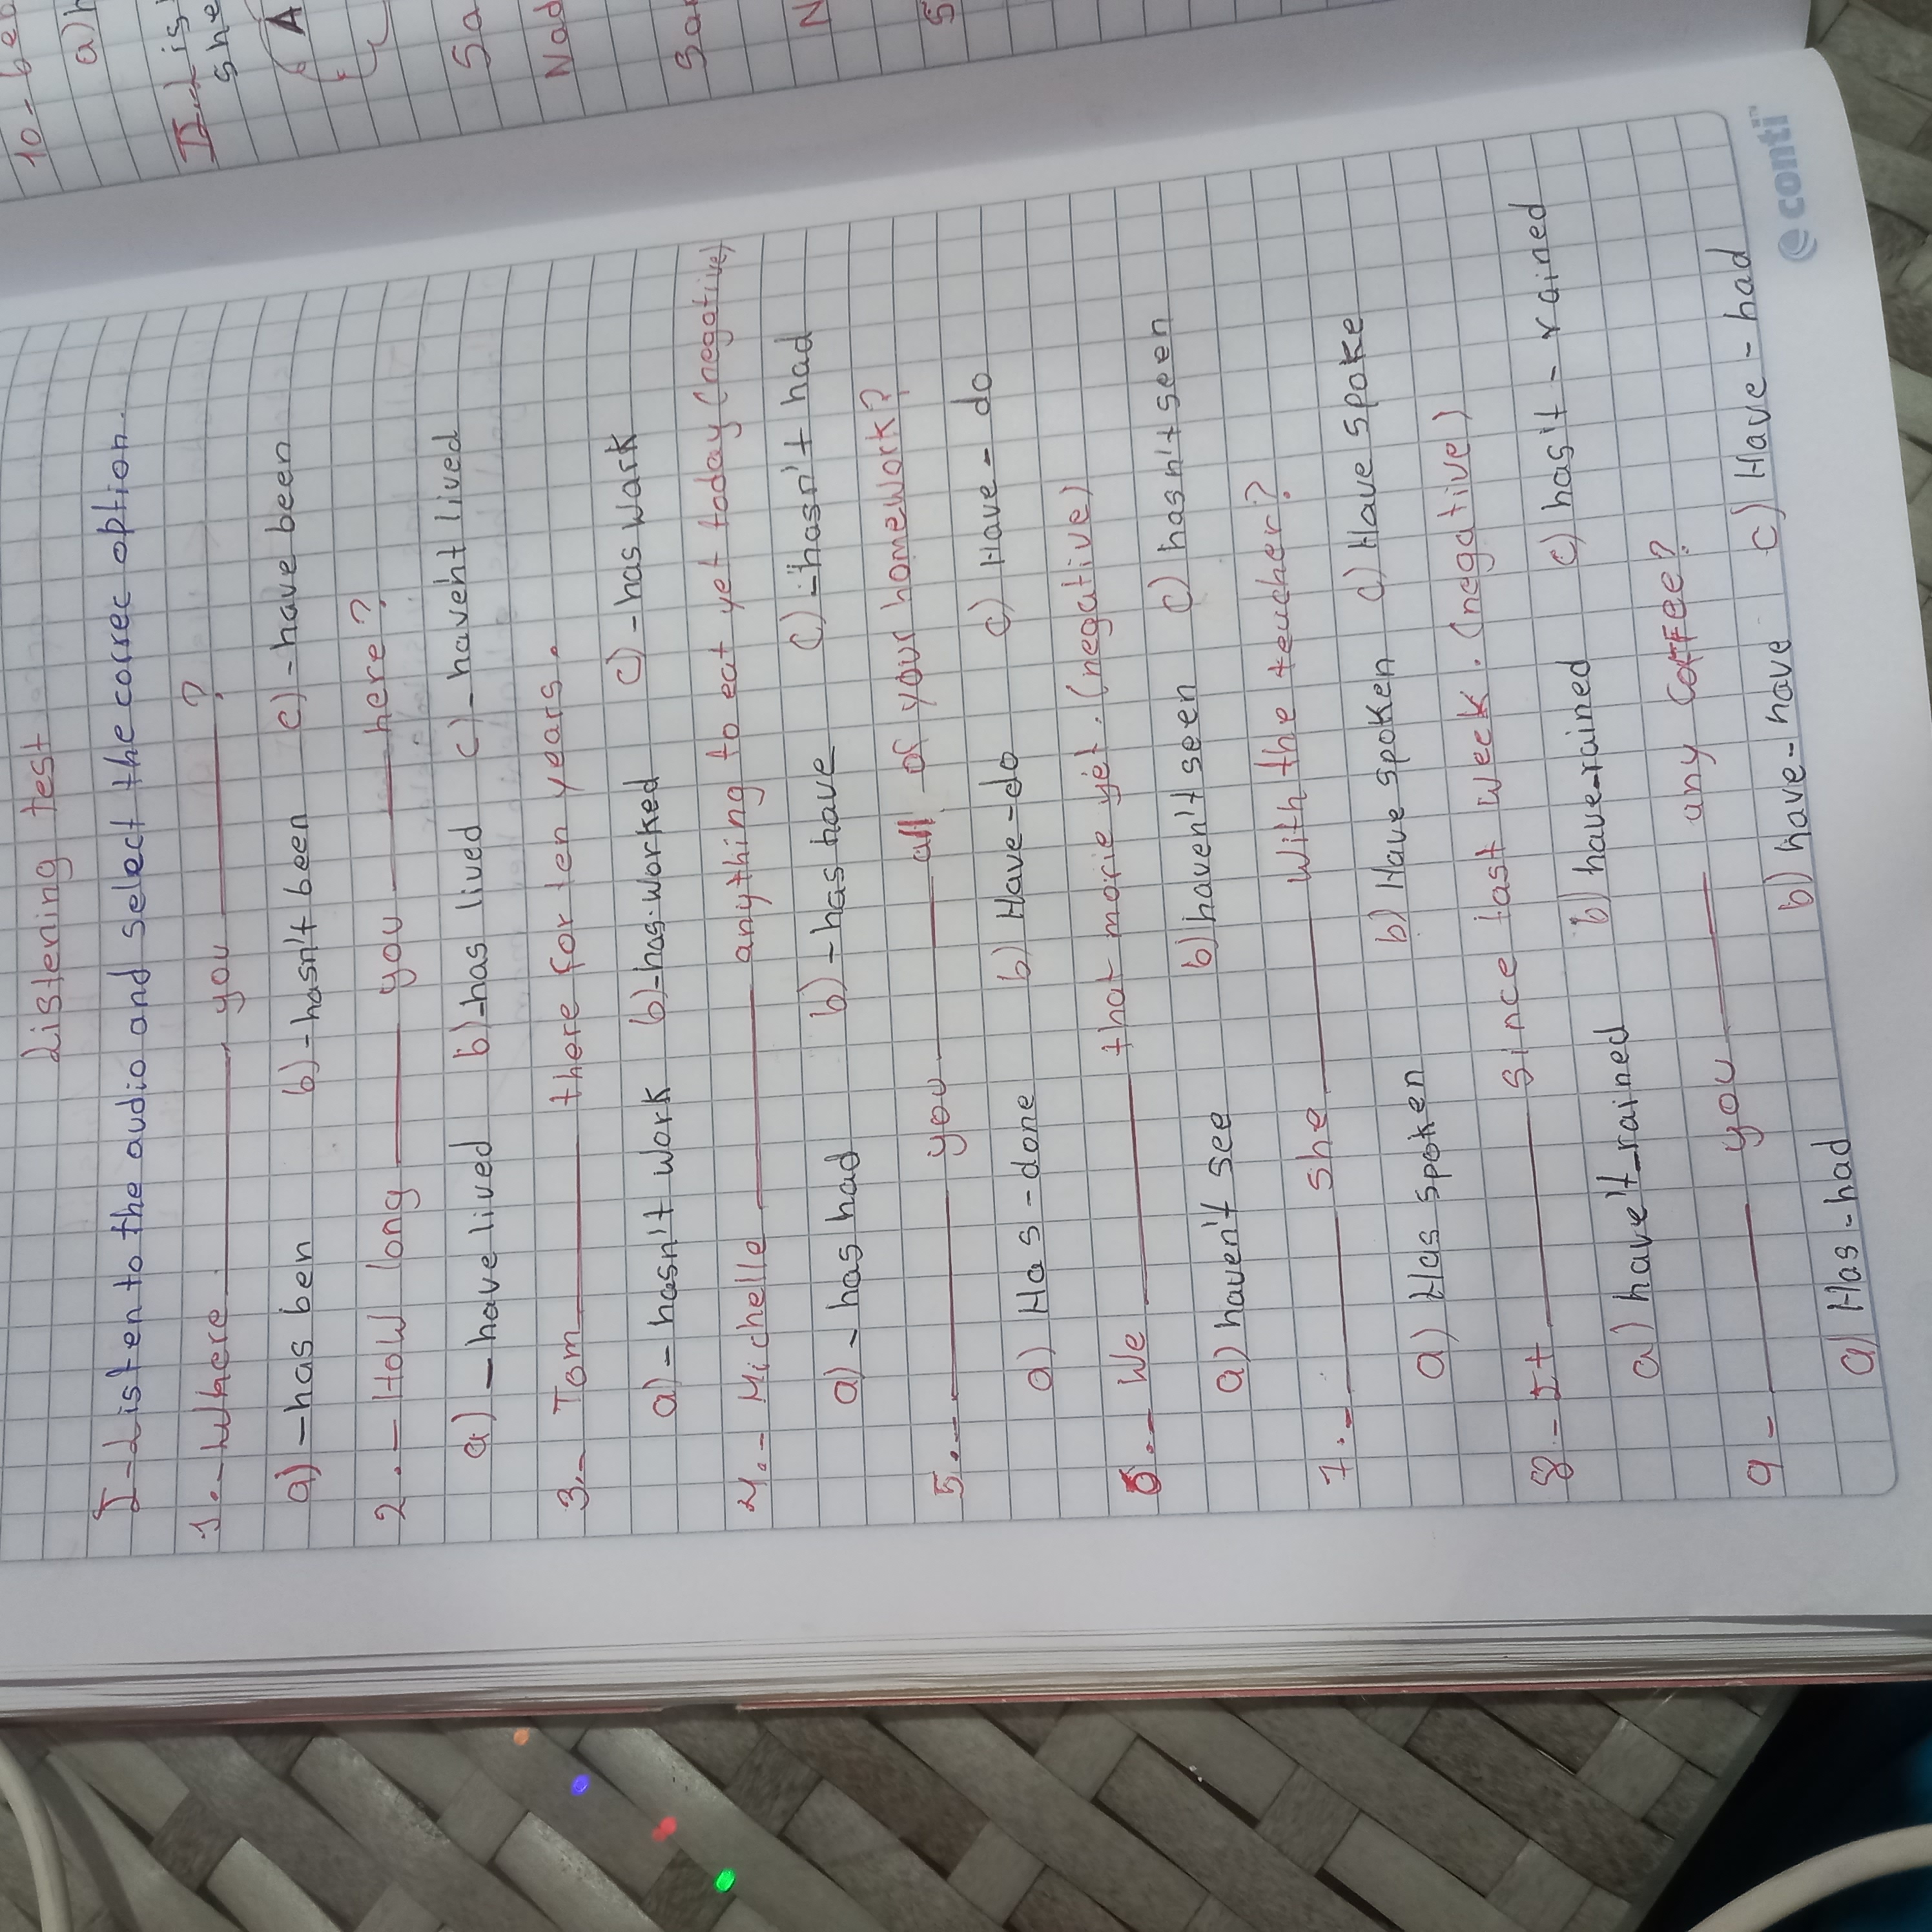 Listening test
I-Listen to the audio and select the correc option.
1.-Where ________ you ________?
a) -has ben b) -hasn't been c) -have been
2.- How long ________ you ________ here?
a) -have lived b) -has lived c) -haven't lived
3.- Tom ________ there for ten years.
a) -hasn't work b) -has worked c) -has work
4.- Michelle ________ anything to eat yet today (negative)
a) - has had b) -has have c) -hasn't had
5.- ________ you ________ all of your homework?
a) Has-done b) Have-do c) Have-do
6.- We ________ that movie yet. (negative)
a) haven't see b) haven't seen c) hasn't seen
7.- ________ she ________ with the teacher?
a) Has spoken b) Have spoken c) Have spoke
8.- It ________ since last week. (negative)
a) have't-rained b) have-rained c) has't-rained
9- ________ you ________ any coffee?
a) Has-had b) have-have c) Have-had
conti
10-
a)
II.
she
A
Sa
Nad
Sa
N
S